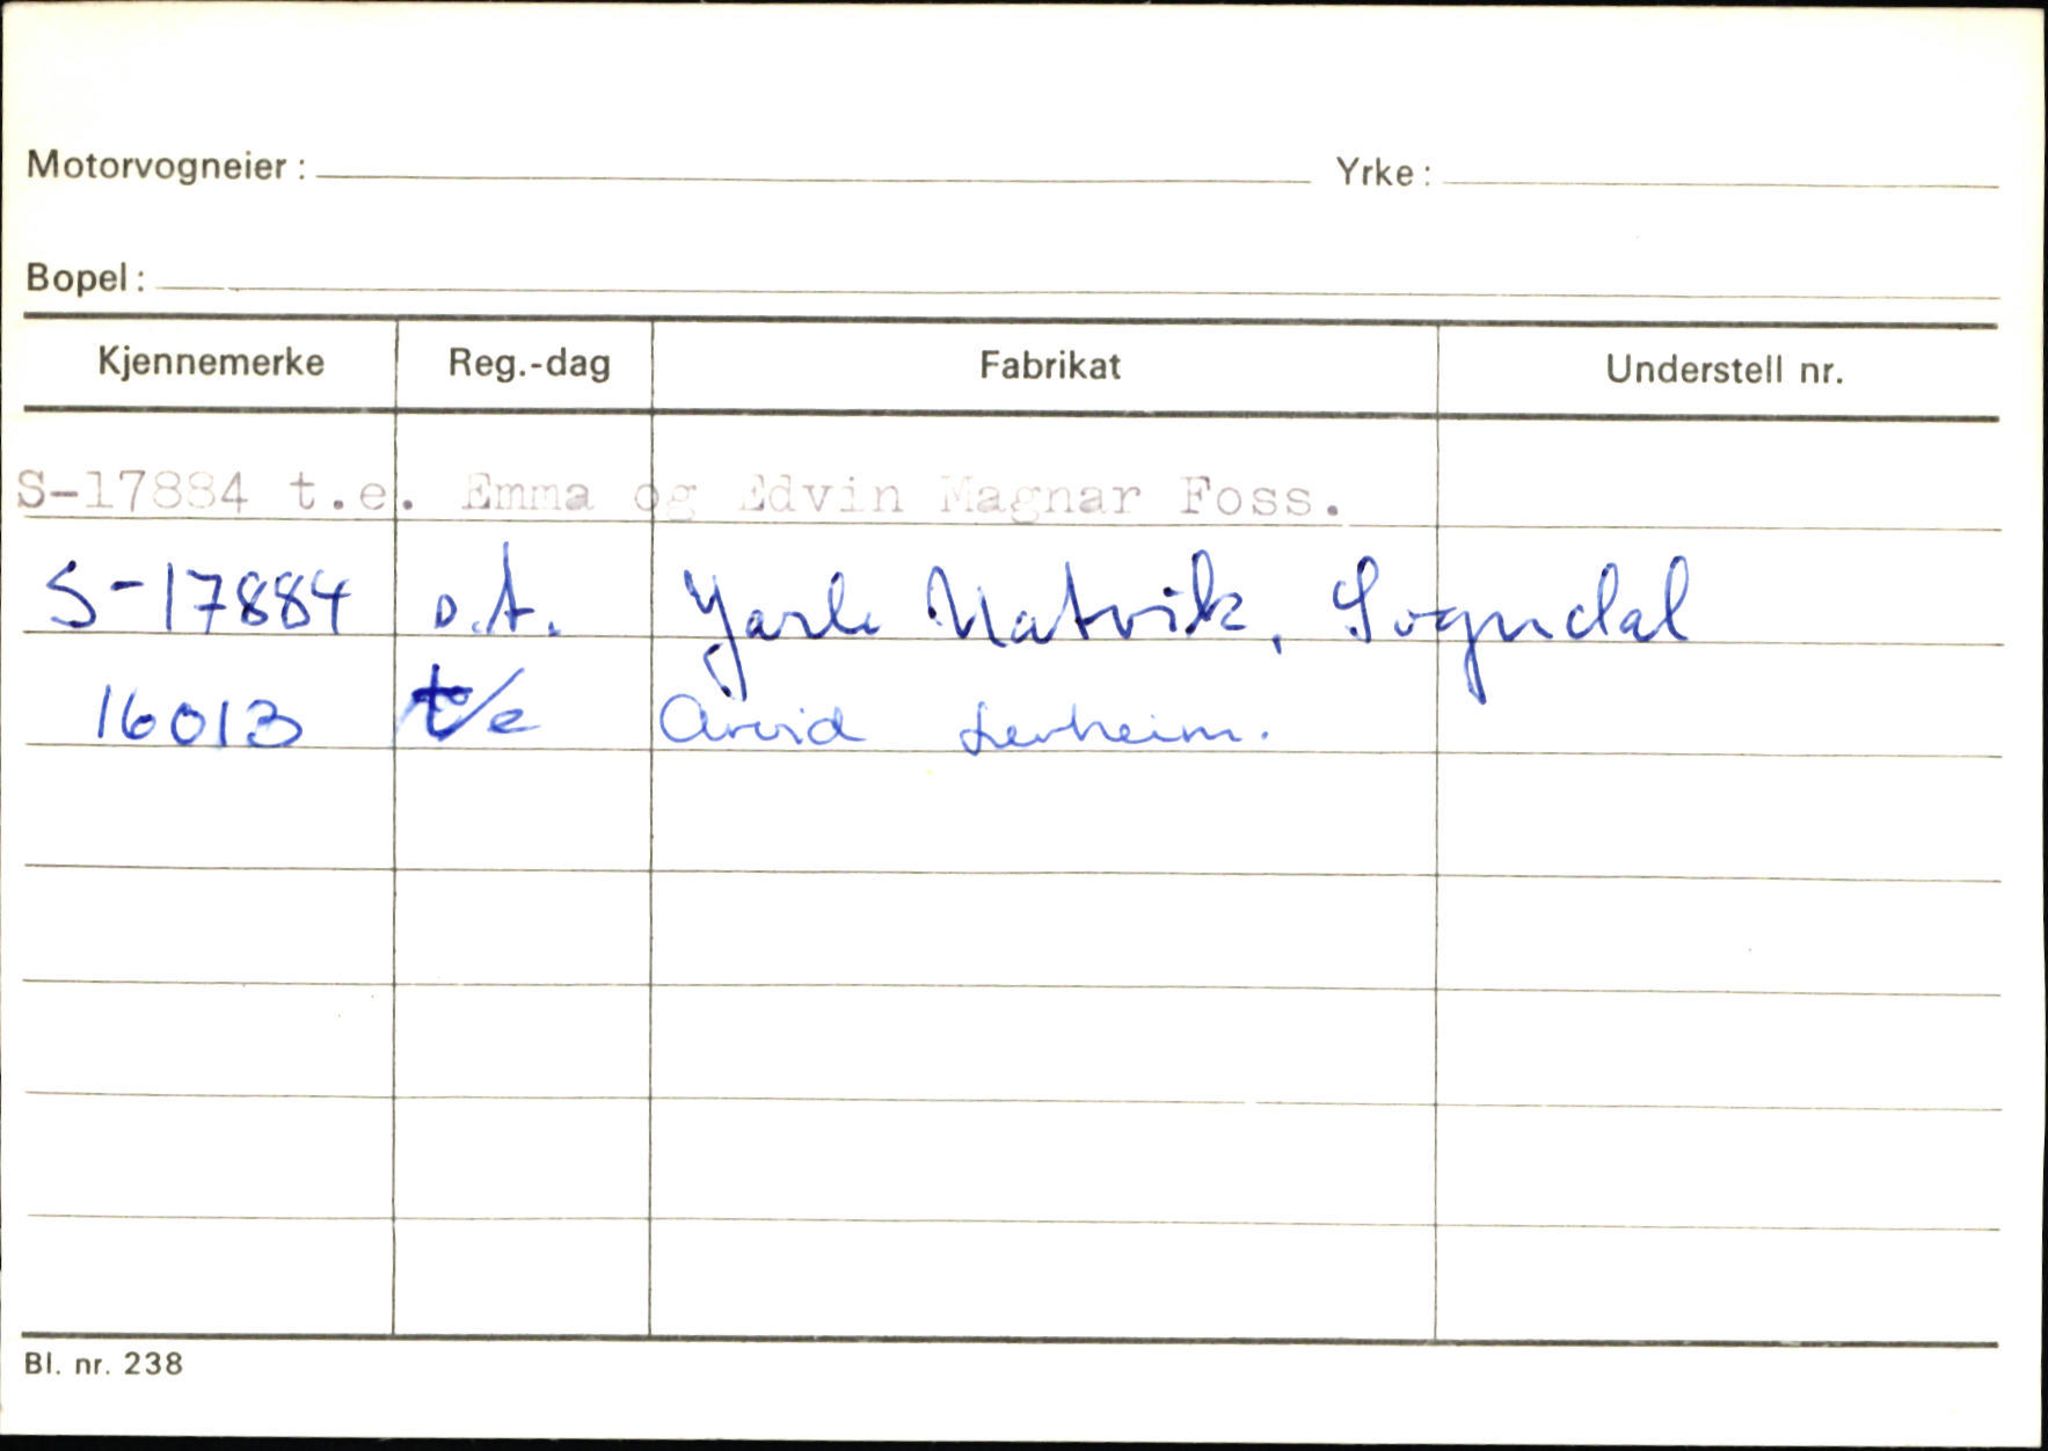 Motorvogneier: Yrke:
Bopel:
Kjennemerke Reg.-dag Fabrikat Understell nr.
S-17884 t.e. Emma og Edvin Magnar Foss.
S-17884 o.t. Jarle Natvik, Sogndal
16013 t/e Arvid Lerheim.
Bl. nr. 238